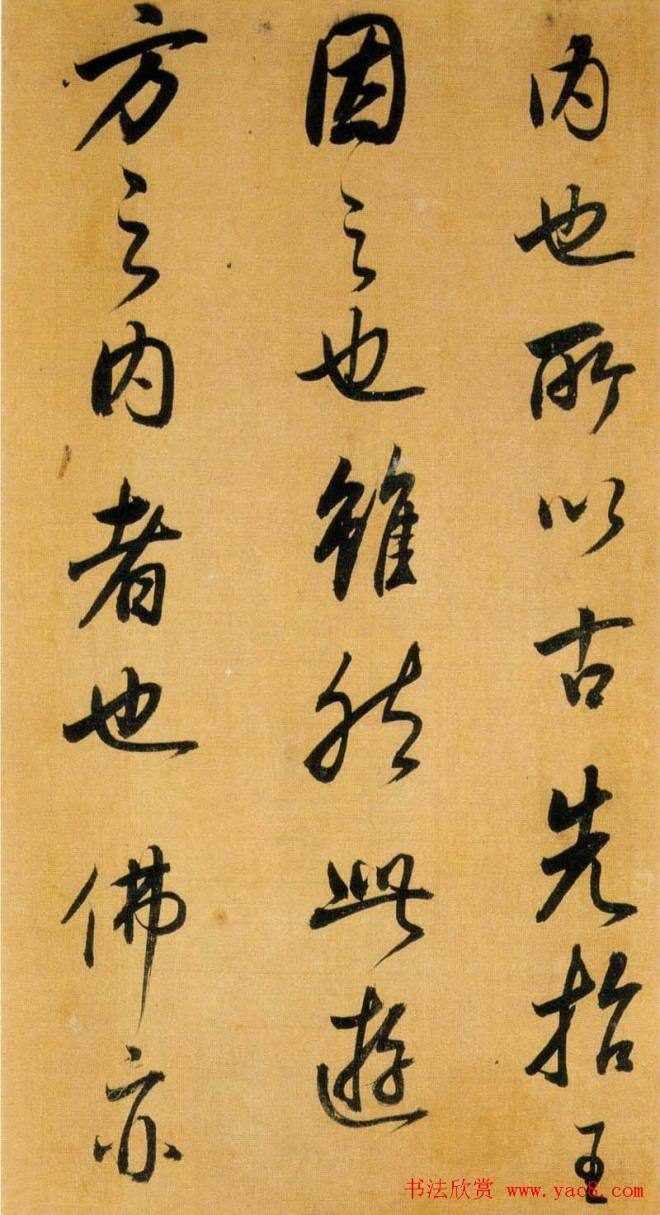 内也所以古先哲王
因之也雖然此遊
方之内者也佛亦
书法欣赏 www.yac8.com